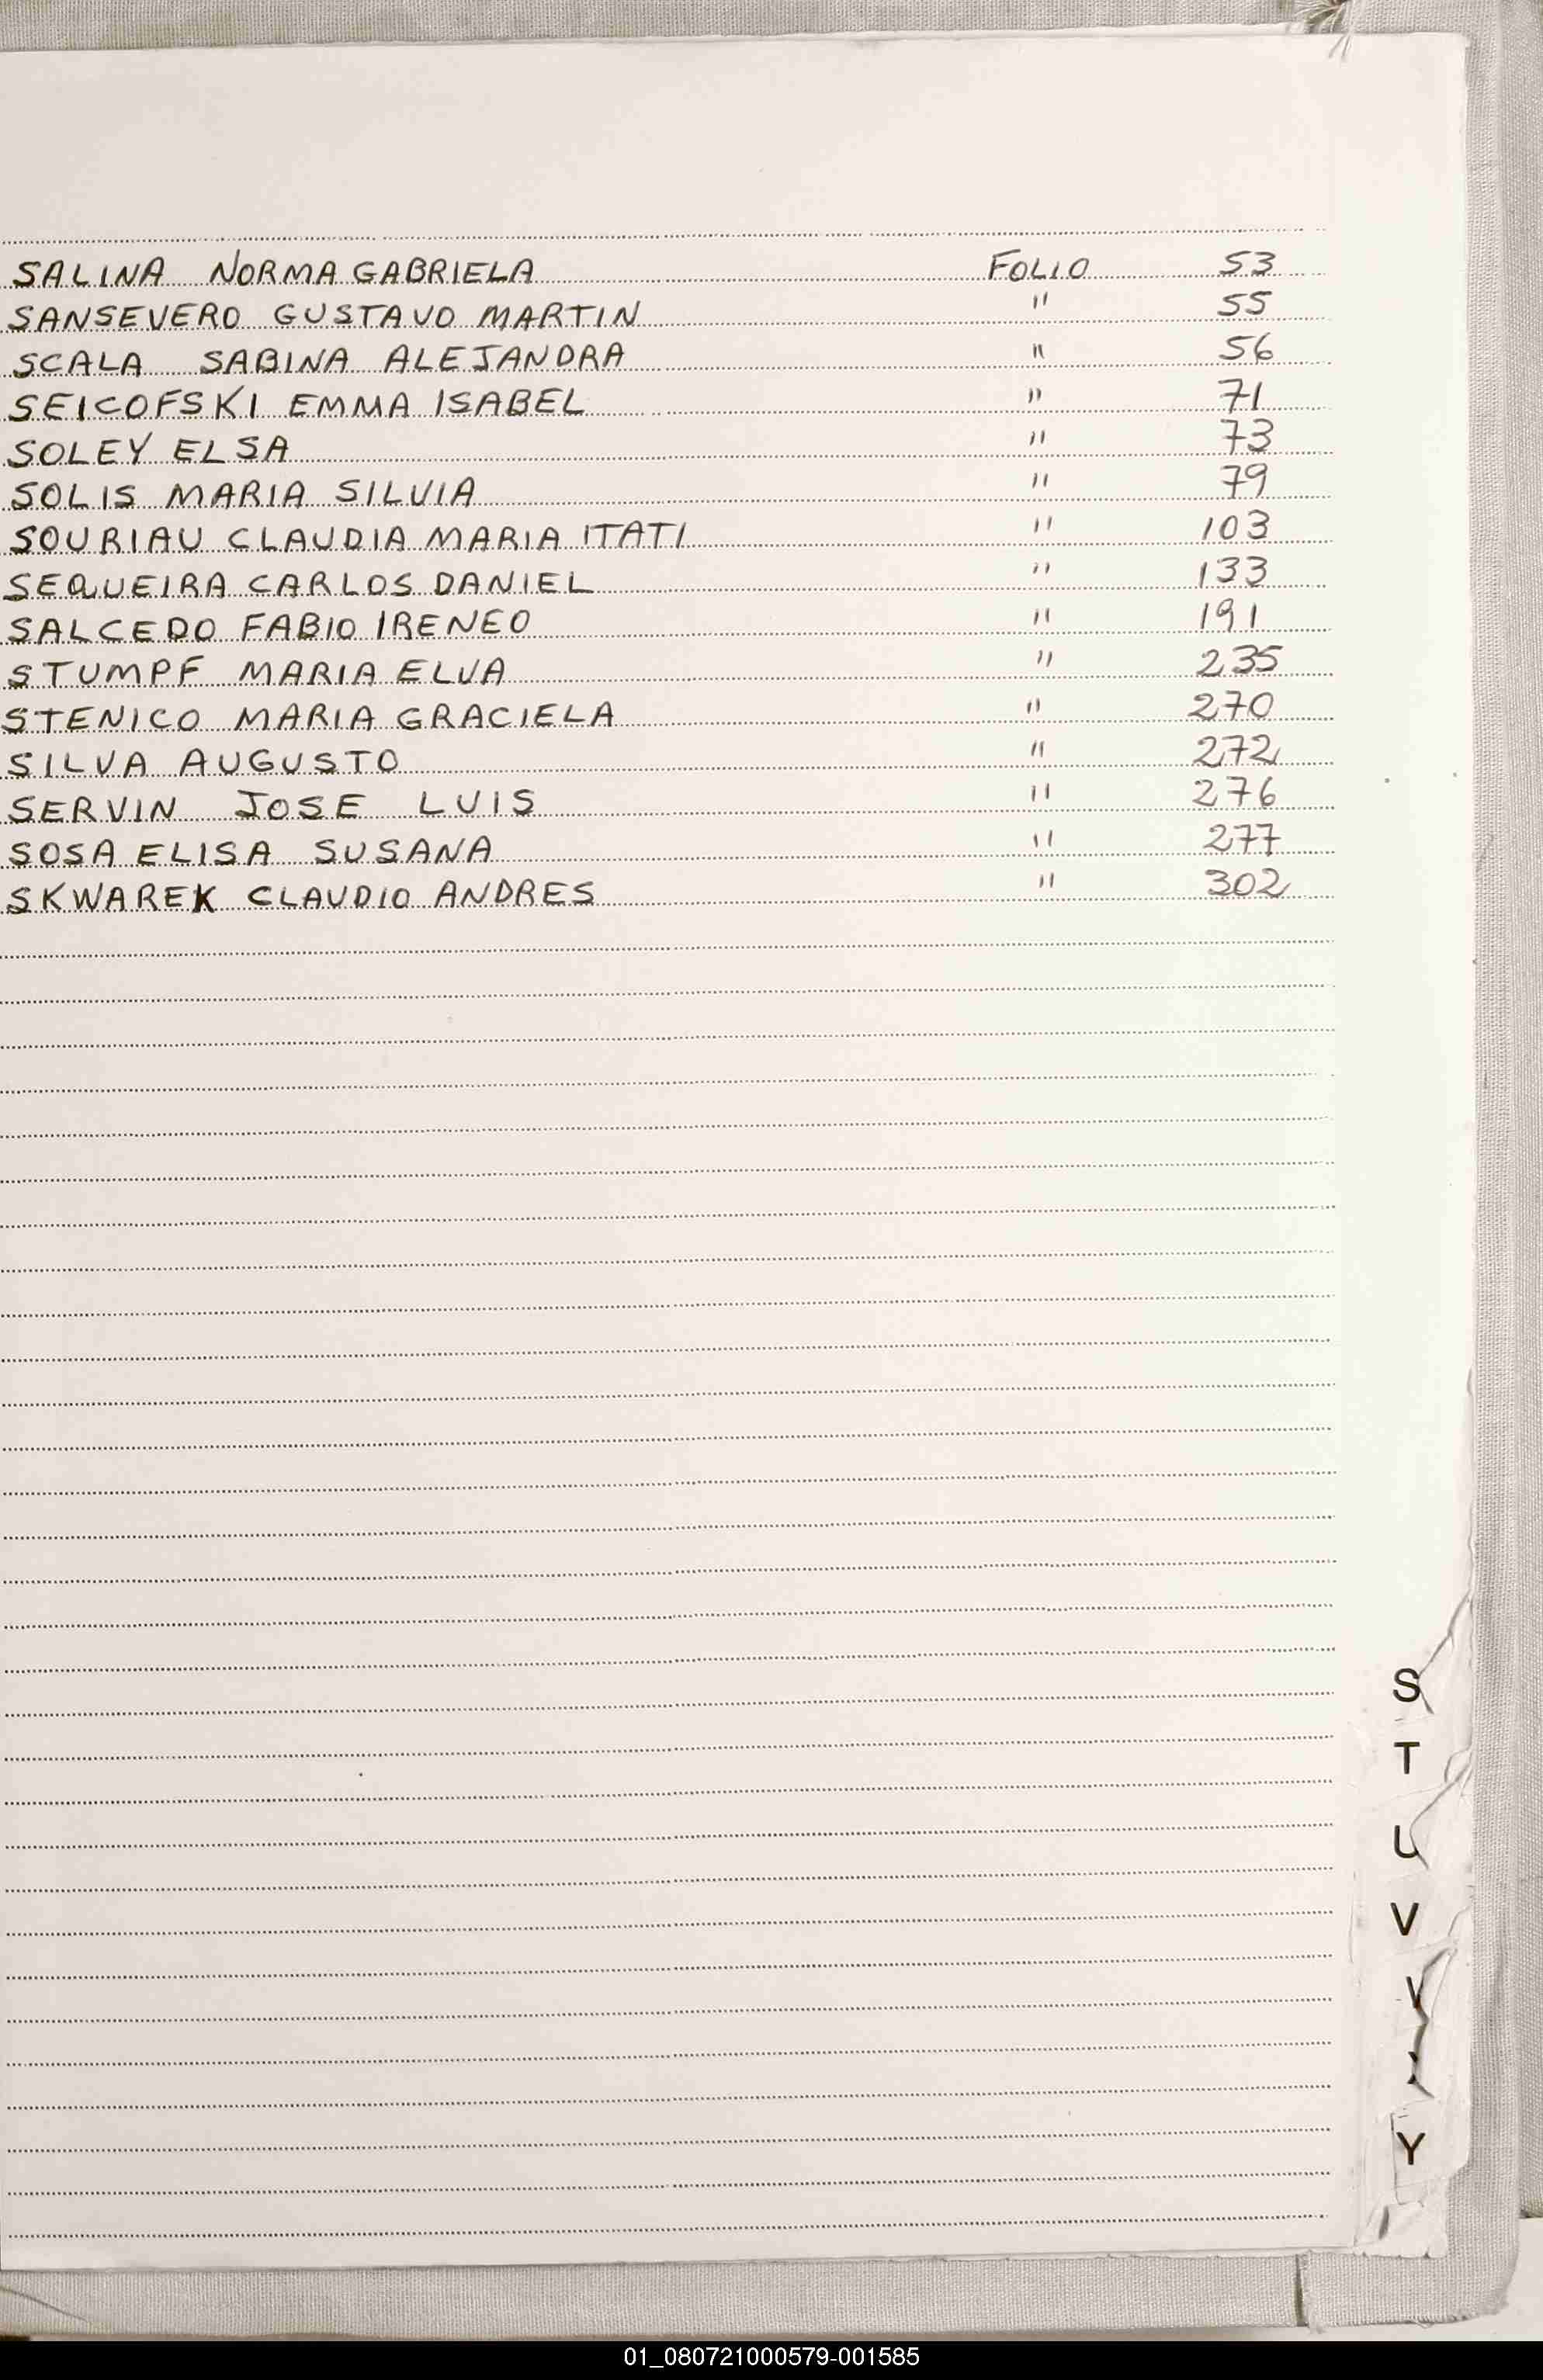 SALINA NORMA GABRIELA FOLIO 53
SANSEVERO GUSTAVO MARTIN " 55
SCALA SABINA ALEJANDRA " 56
SEICOFSKI EMMA ISABEL " 71
SOLEY ELSA " 73
SOLIS MARIA SILVIA " 79
SOURIAU CLAUDIA MARIA ITATI " 103
SEQUEIRA CARLOS DANIEL " 133
SALCEDO FABIO IRENEO " 191
STUMPF MARIA ELVA " 235
STENICO MARIA GRACIELA " 270
SILVA AUGUSTO " 272
SERVIN JOSE LUIS " 276
SOSA ELISA SUSANA " 277
SKWAREK CLAUDIO ANDRES " 302
S
T
U
V
Y
01_080721000579-001585